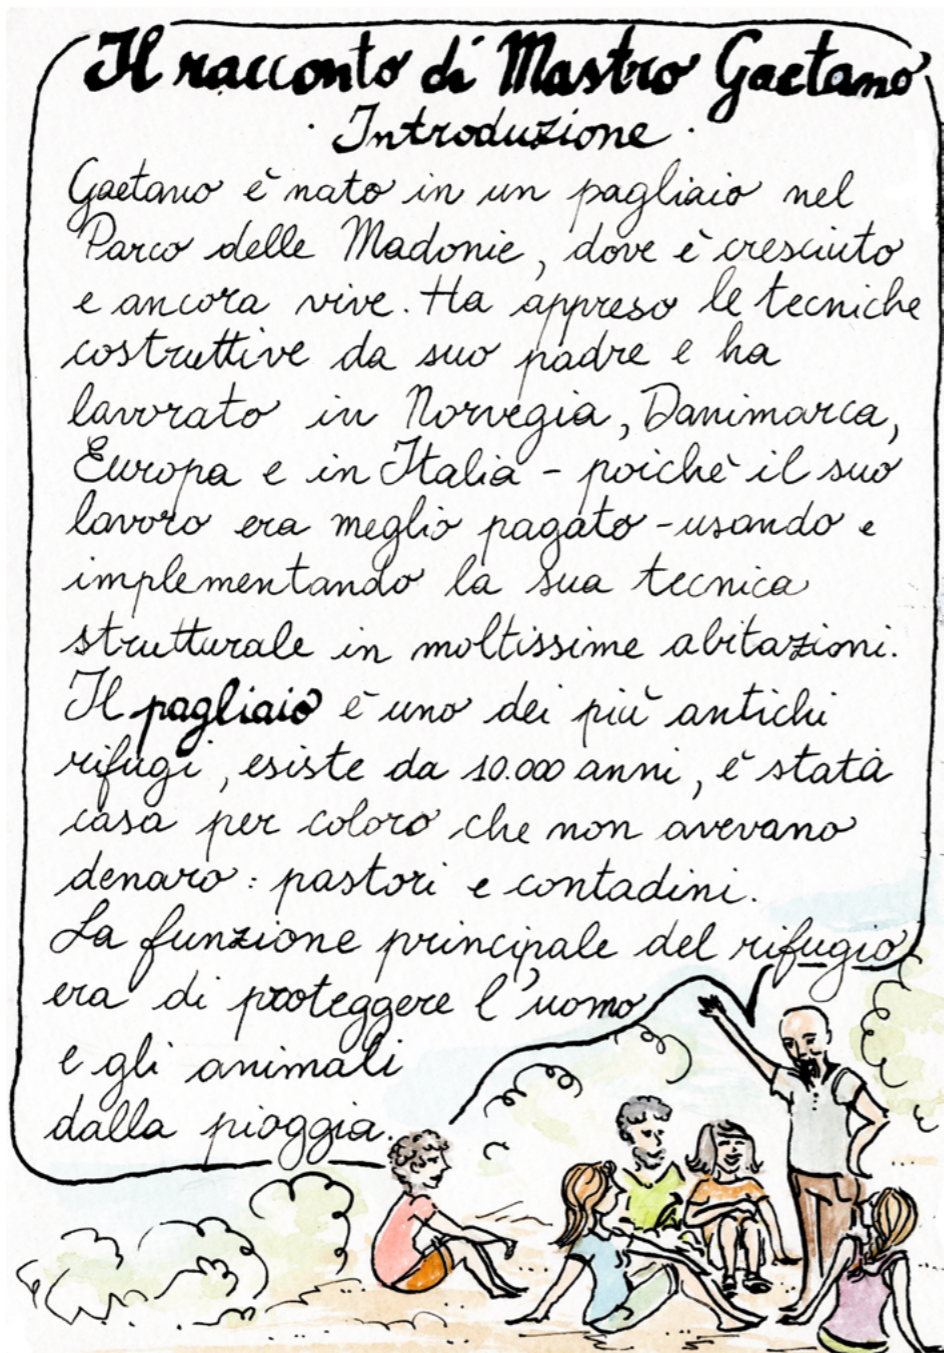 Il racconto di Mastro Gaetano
· Introduzione ·
Gaetano è nato in un pagliaio nel
Parco delle Madonie, dove è cresciuto
e ancora vive. Ha appreso le tecniche
costruttive da suo padre e ha
lavorato in Norvegia, Danimarca,
Europa e in Italia - poichè il suo
lavoro era meglio pagato - usando e
implementando la sua tecnica
strutturale in moltissime abitazioni.
Il pagliaio è uno dei più antichi
rifugi, esiste da 10.000 anni, è stata
casa per coloro che non avevano
denaro: pastori e contadini.
La funzione principale del rifugio
era di proteggere l'uomo
e gli animali
dalla pioggia.